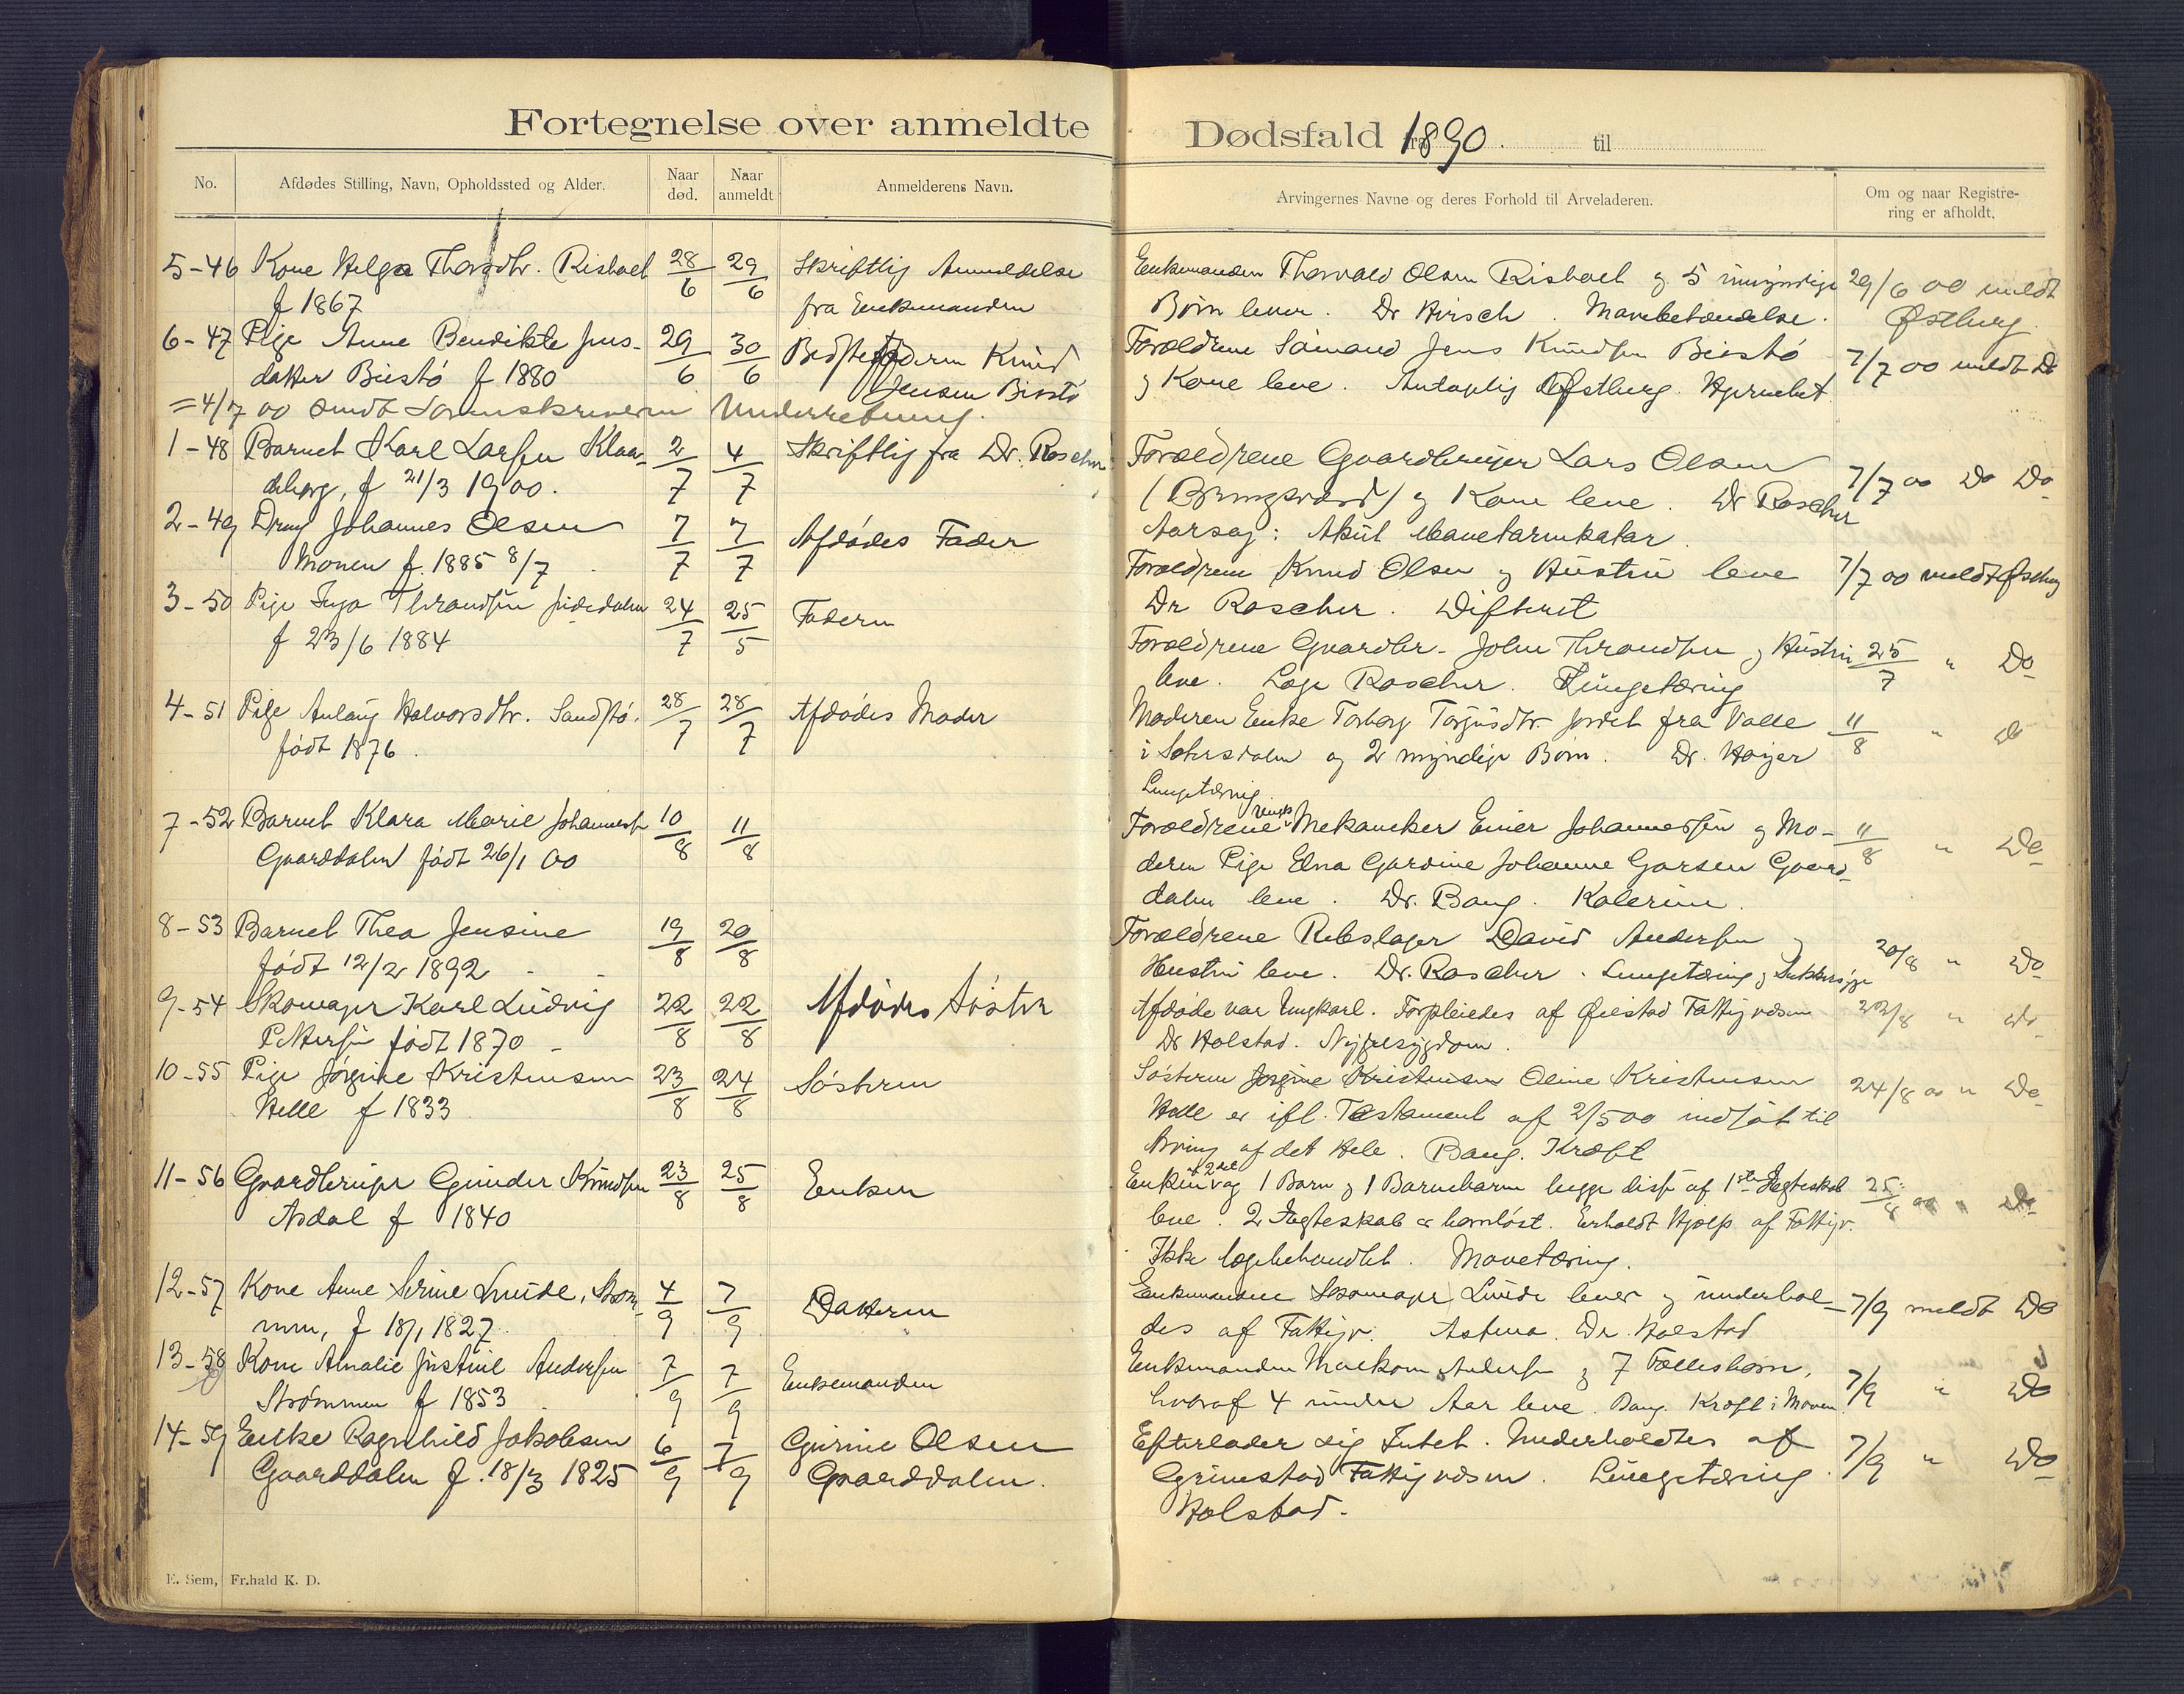 Fortegnelse over anmeldte Dødsfald fra 1890. til
No.
Afdødes Stilling, Navn, Opholdssted og Alder.
Naar død.
Naar anmeldt
Anmelderens Navn.
Arvingernes Navne og deres Forhold til Arveladeren.
Om og naar Registrering er afholdt.
5-46 Kone Helga Thorsdtr. 28/6 29/6 Skriftlig Anmeldelse Enkemanden Thorvald Olsen og 5 umyndige 29/6 00 meldt
f 1867 fra Enkemanden Børn lever. Dr Hirsch. Mavebetændelse. Østberg.
6-47 Pige Anne Bendikte Jens- 29/6 30/6 Bedstefaderen Knud Forældrene Sømand Jens Knudsen Biestø 7/7 00 meldt Do
datter Biestø f 1880 Jensen Biestø og Kone leve. Østberg.
=4/7 00 sendt Sorenskriveren Underretning.
1-48 Barnet Karl Larsen Klaa- 2/7 4/7 Skriftlig fra Dr. Roscher Forældrene Gaardbruger Lars Olsen 7/7 00 Do Do
deborg, f 21/3 1900. (Bringsværd) og Kone leve. Dr Roscher
Aarsag: Akut Mavetarmkatar
2-49 Dreng Johannes Olsen 7/7 7/7 Afdødes Fader Forældrene Knud Olsen og Hustru leve 7/7 00 meldt Østberg
Monen f. 1885 8/7 Dr Roscher. Difterit
3-50 Pige Inga Thrandsen 24/7 25/5 Faderen Forældrene Gaardbr. John Thrandsen og Hustru 25/7 " Do
f 23/6 1884 leve. Læge Roscher. Lungetæring
4-51 Pige Aslaug Halvorsdtr. Sandstø. 28/7 28/7 Afdødes Moder Moderen Enke Torborg Torjusdtr. fra Valle 11/8 " do
født 1876. i Sætersdalen og 2 myndige Børn. Dr. Høyer
Lungetæring.
7-52 Barnet Klara Marie Johannesen 10/8 11/8 Forældrene Ungk. Mekaniker Einer Johannessen og Mo- 11/8 " Do
Gaarddalen født 26/1 00 deren Pige Elna Gardine Johanne Garsen Gaard-
dalen leve. Dr. Bang. Kolerine.
8-53 Barnet Thea Jensine 19/8 20/8 Forældrene Rebslager David Andersen og 20/8 " Do
født 12/2 1892 Hustru leve. Dr. Roscher. Lungetæring og Sukkersyge
9-54 Skomager Karl Ludvig 22/8 22/8 Afdødes Søster Afdøde var Ungkarl. Forpleiedes af Øiestad Fattigvæsen 22/8 " do
Pettersen født 1870 Dr Holstad. Nyresygdom.
10-55 Pige Jørgine Kristensen 23/8 24/8 Søsteren Søsteren Jørgine Kristensen Oline Kristensen 24/8 00 " Do
Helle f 1833 Helle er ifl. Testament af 2/5 00 indsat til
Arving af det Hele. Bang. Kræft
11-56 Gaardbruger Gunder Knudsen 23/8 25/8 Enken Enken og 1 Barn og 1 Barnebarn begge disse af 1ste Ægteskab 25/8 00 " Do
Asdal f 1840 leve. 2 Ægteskab er barnløst. Erholdt Hjælp af Fattigv.
Ikke lægebehandlet. Mavetæring.
12-57 Kone Anne Serine Lunde, Strøm- 4/9 7/9 Datteren Enkemanden Skomager Lunde lever og underhol- 7/9 meldt Do
men, f 18/1 1827 des af Fattigv. Astma. Dr. Holstad
13-58 Kone Amalie Justine Andersen 7/9 7/9 Enkemanden Enkemanden Malkom Andersen og 7 Fællesbørn, 7/9 " Do
Strømmen f 1853 hvoraf 4 under Aar leve. Bang. Kræft i Maven.
14-59 Enke Ragnhild Jakobsen 6/9 7/9 Gurine Olsen Efterlader sig Intet. Underholdtes af 7/9 " Do
Gaarddalen f. 18/3 1825 Gaarddalen. Grimstad Fattigvæsen. Lungetæring.
Holstad.
E. Sem, Fr.hald K. D.